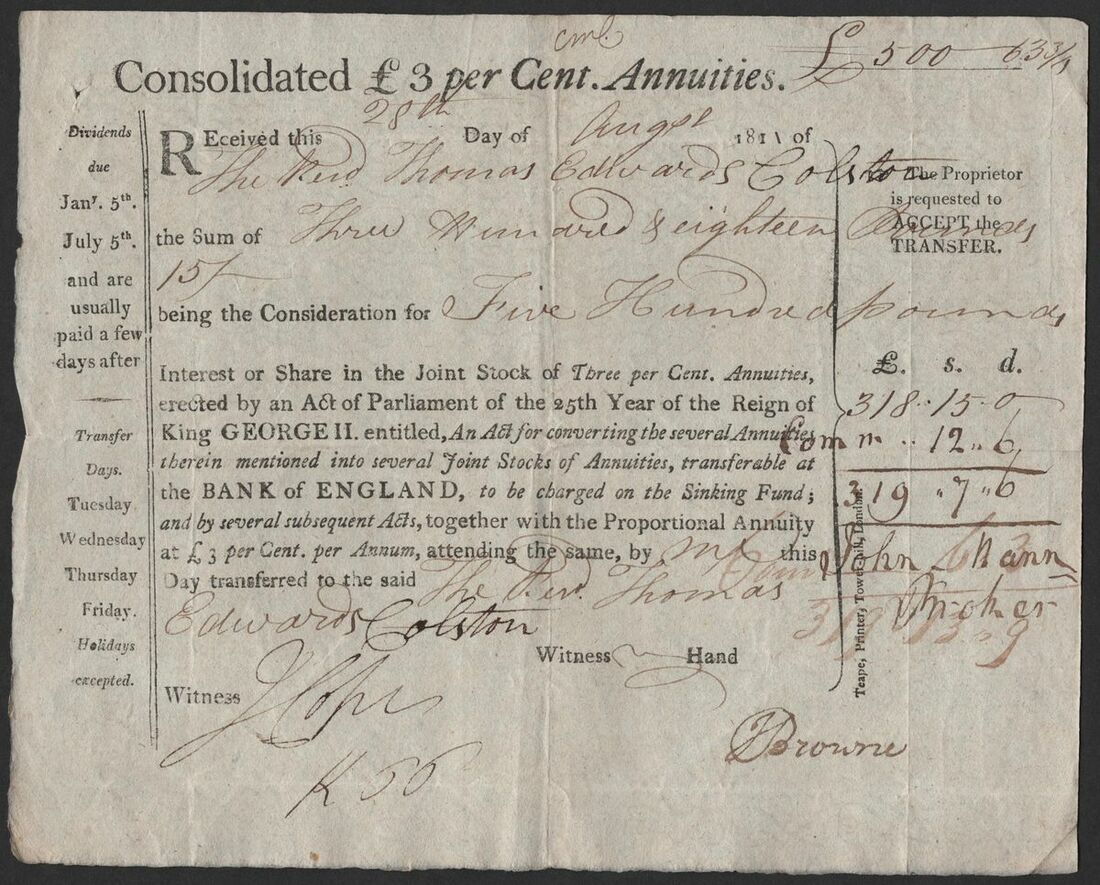 £ 500 63 3/4
Consolidated £ 3 per Cent. Annuities.
Dividends
due
Janʸ. 5th.
July 5th.
and are
usually
paid a few
days after
Transfer
Days.
Tuesday
Wednesday
Thursday
Friday.
Holidays
excepted.
REceived this 28th Day of Augst 1811 of
The Revd Thomas Edwards Colston
the Sum of Three Hundred & eighteen Pounds
15/-
being the Consideration for Five Hundred pounds
Interest or Share in the Joint Stock of Three per Cent. Annuities,
erected by an Act of Parliament of the 25th Year of the Reign of
King GEORGE II. entitled, An Act for converting the several Annuities
therein mentioned into several Joint Stocks of Annuities, transferable at
the BANK of ENGLAND, to be charged on the Sinking Fund;
and by several subsequent Acts, together with the Proportional Annuity
at £ 3 per Cent. per Annum, attending the same, by me this
Day transferred to the said The Revd. Thomas
Edwards Colston
Witness my Hand
Witness
Browne
The Proprietor
is requested to
ACCEPT the
TRANSFER.
£. s. d.
318 .. 15 . 0
Comm .. 12 .. 6
319 .. 7 .. 6
John Mann
Broker
319 .. 13 .. 9
Teape, Printer, Tower-hill, London.